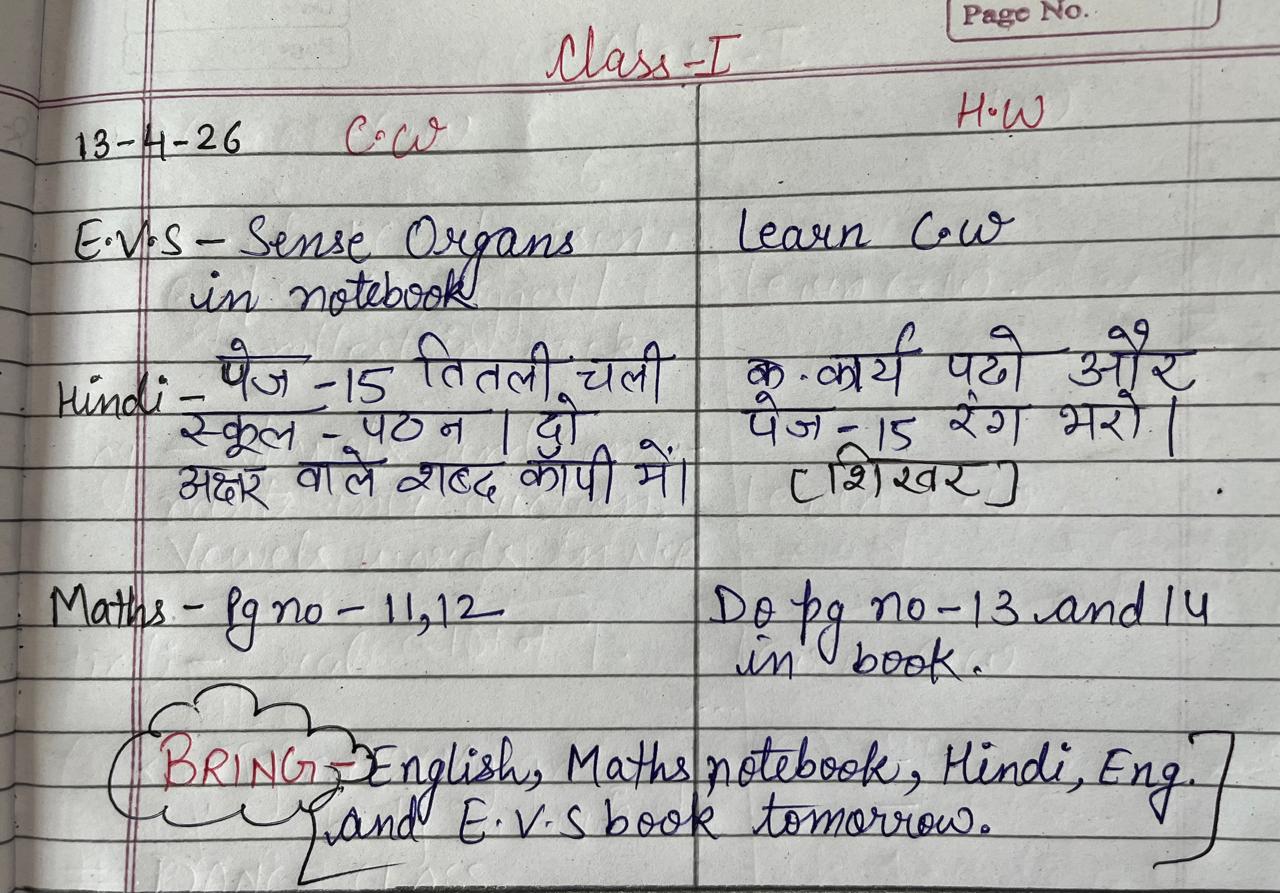 Page No.
Class-I
13-4-26 C.W H.W
E.V.S - Sense Organs
in notebook
Learn C.W
Hindi - पेज -15 तितली चली
स्कूल - पठन । दो
अक्षर वाले शब्द कॉपी में।
क.कार्य पढो और
पेज-15 रंग भरो।
[शिखर]
Maths - Pg no - 11,12
Do pg no-13 and 14
in book.
BRING - English, Maths notebook, Hindi, Eng.
and E.V.S book tomorrow.